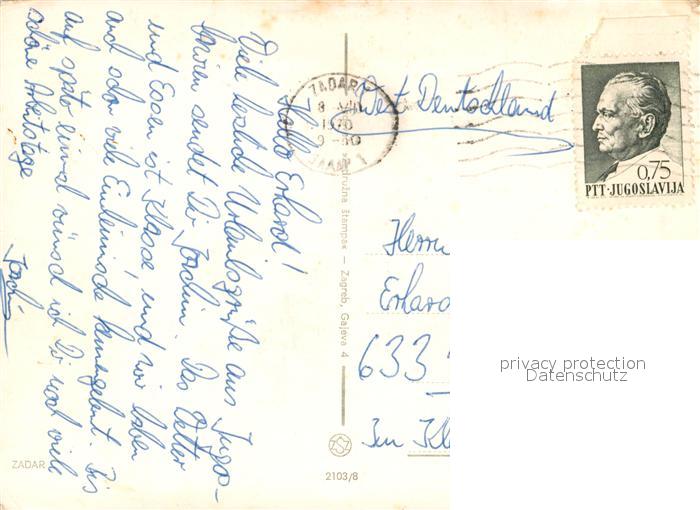 Hallo Erhard!
Viele herzliche Urlaubsgrüße aus Jugo-
slawien sendet Dir Joachim. Das Wetter
und Essen ist Klasse und wir haben
auch schon viele Einheimische kennengelernt. Bis
auf später einmal wünsch ich Dir noch viele
schöne Arbeitstage
ZADAR
8 VII
1970
ZADAR 1
West Deutschland
0,75
PTT·JUGOSLAVIJA
družna štampa« — Zagreb, Gajeva 4
Herrn
Erhard
633
Im Kl
privacy protection
Datenschutz
ZADAR
2103/8